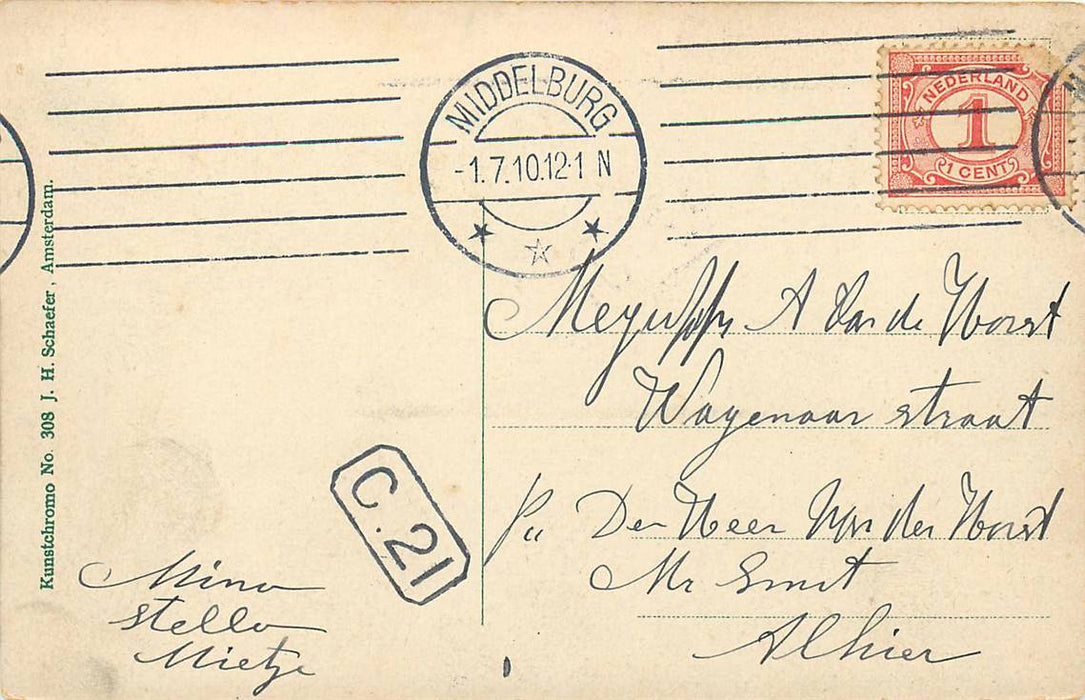 MIDDELBURG
-1.7.10.12-1 N
NEDERLAND
1
1 CENT
Kunstchromo No. 308 J. H. Schaefer, Amsterdam.
A van de Vorst
Wagenaar straat
De Heer van der Vorst
Mr Smit
Alhier
C.21
Mina
Stella
Mietje